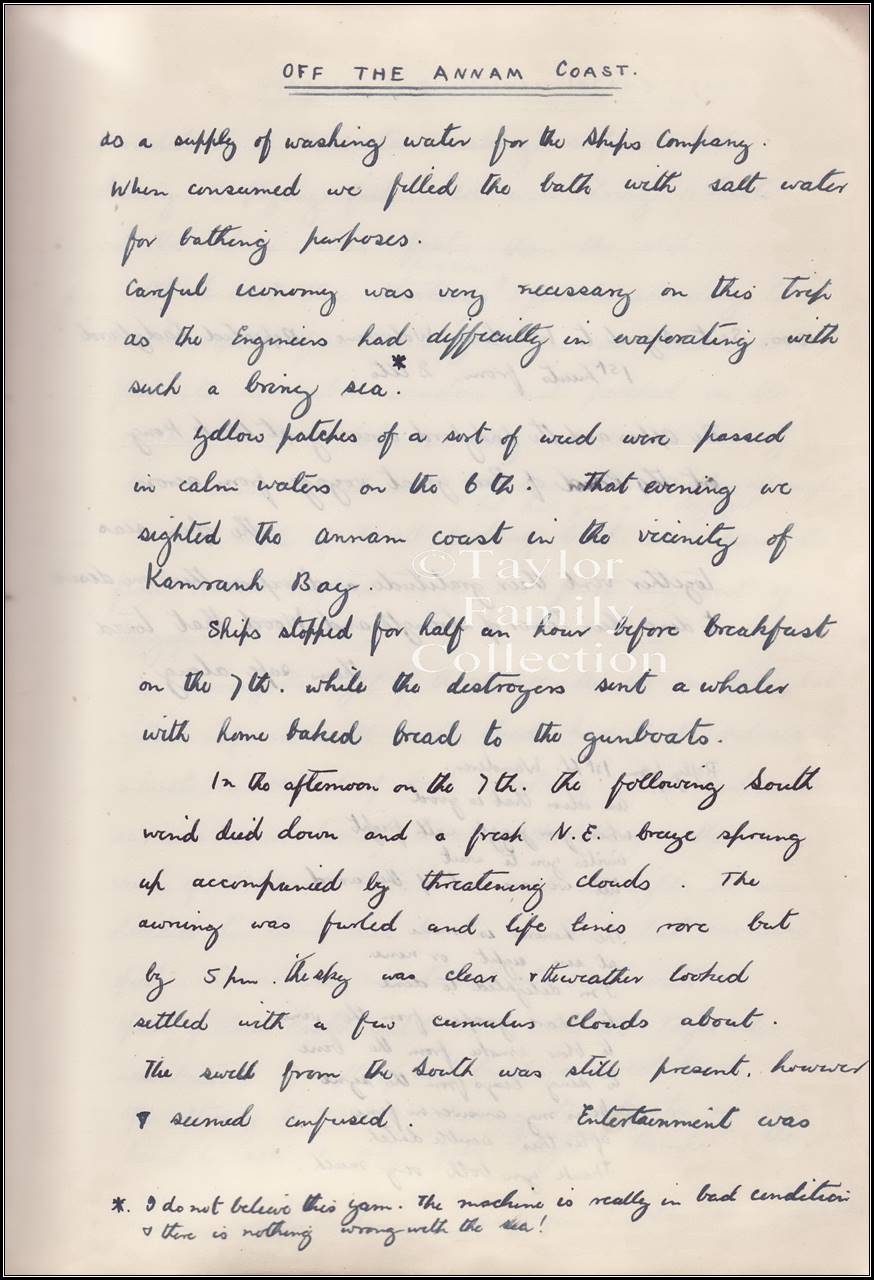 OFF THE ANNAM COAST.
as a supply of washing water for the Ships Company.
When consumed we filled the bath with salt water
for bathing purposes.
Careful economy was very necessary on this trip
as the Engineers had difficulty in evaporating with
such a briny sea.*
Yellow patches of a sort of weed were passed
in calm waters on the 6th. That evening we
sighted the Annam coast in the vicinity of
Kamranh Bay.
Ships stopped for half an hour before breakfast
on the 7th. while the destroyers sent a whaler
with home baked bread to the gunboats.
In the afternoon on the 7th. the following South
wind died down and a fresh N.E. breeze sprung
up accompanied by threatening clouds. The
awning was furled and life lines rove but
by 5 pm. the sky was clear & the weather looked
settled with a few cumulus clouds about.
The swell from the South was still present, however
& seemed confused. Entertainment was
*. I do not believe this yarn. The machine is really in bad condition
& there is nothing wrong with the sea!
©Taylor
Family
Collection